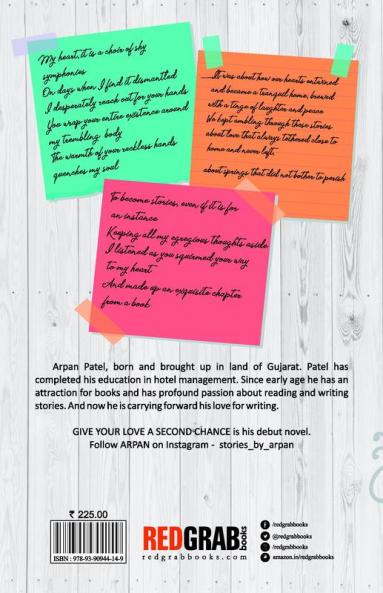 My heart, it is a choir of shy
symphonies
On days when I find it dismantled
I desperately reach out for your hands
You wrap your entire existence around
my trembling body
The warmth of your reckless hands
quenches my soul
It was about how our hearts entwined
and became a tranquil home, brewed
with a tinge of laughter and peace
We kept ambling through those stories
about love that always tethered close to
home and never left.
about springs that did not bother to perish
To become stories, even if it is for
an instance
Keeping all my egregious thoughts aside
I listened as you squirmed your way
to my heart
And made up an exquisite chapter
from a book
Arpan Patel, born and brought up in land of Gujarat. Patel has
completed his education in hotel management. Since early age he has an
attraction for books and has profound passion about reading and writing
stories. And now he is carrying forward his love for writing.
GIVE YOUR LOVE A SECOND CHANCE is his debut novel.
Follow ARPAN on Instagram - stories_by_arpan
₹ 225.00
ISBN : 978-93-90944-14-9
REDGRAB books
redgrabbooks.com
/redgrabbooks
@redgrabbooks
/redgrabbooks
amazon.in/redgrabbooks